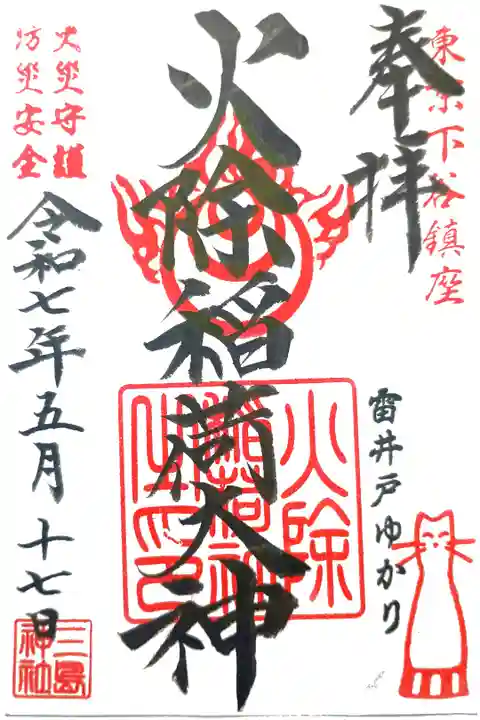 東京下谷鎮座
奉拝
雷井戸ゆかり
火除稲荷大神
火除
稲荷神
社之印
火災守護
防災安全
令和七年五月十七日
三島
神社